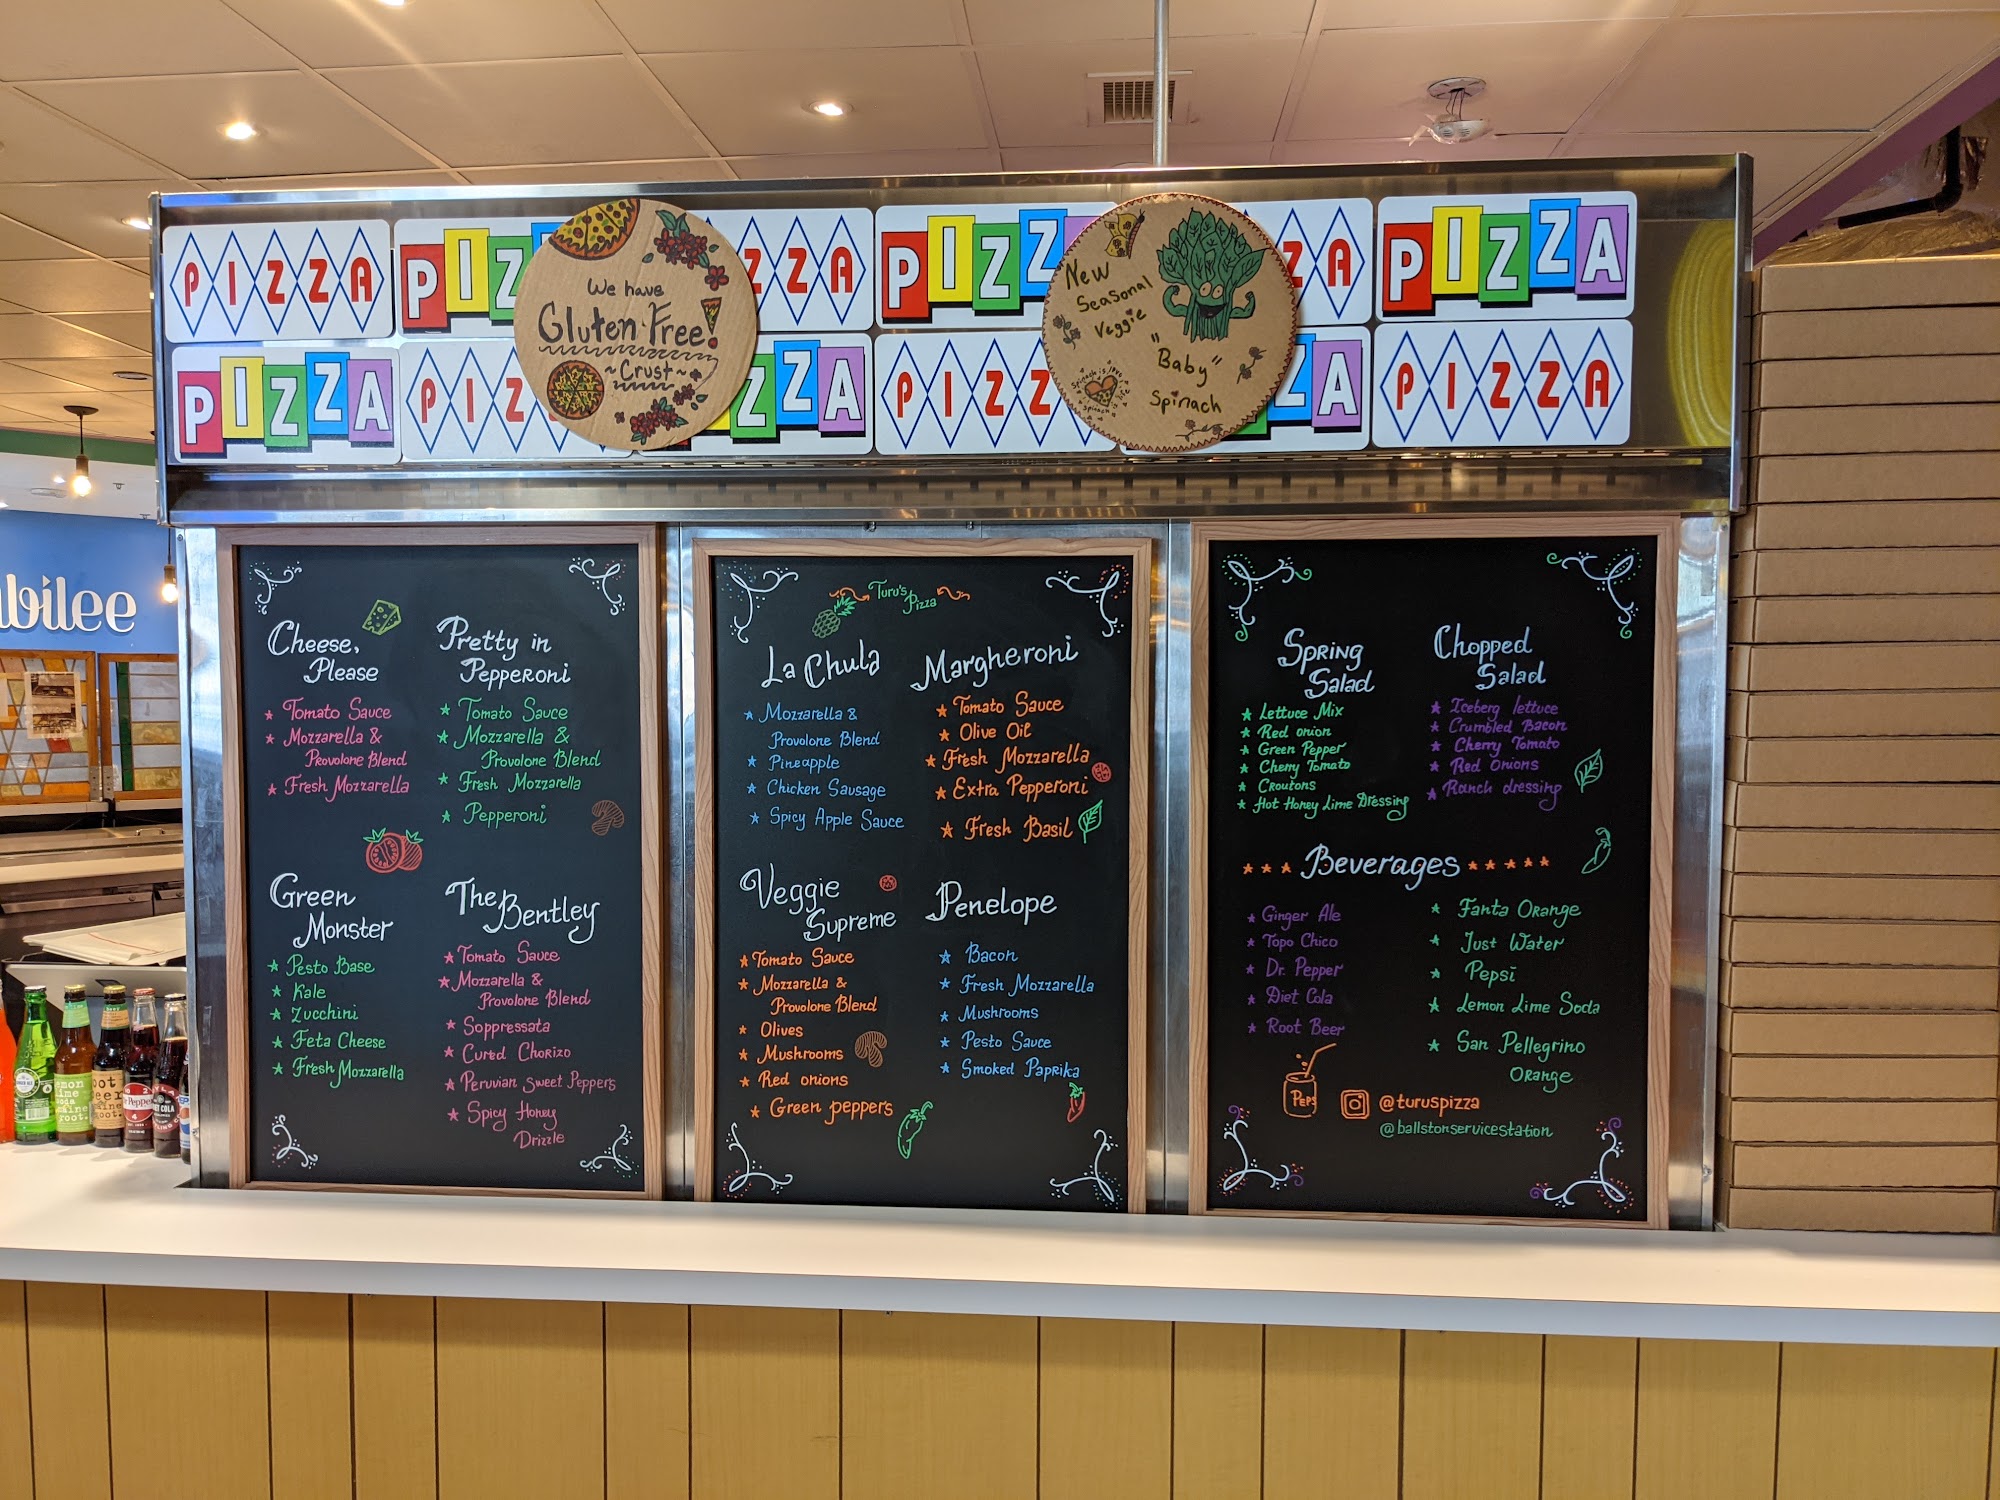 PIZZA
PIZ
ZZA
PIZZ
ZA
PIZZA
PIZZA
PIZ
ZZA
PIZZ
ZA
PIZZA
We have
Gluten Free!
~Crust~
New
Seasonal
Veggie
"Baby"
Spinach
bilee
Cheese,
Please
★ Tomato Sauce
★ Mozzarella &
Provolone Blend
★ Fresh Mozzarella
Pretty in
Pepperoni
★ Tomato Sauce
★ Mozzarella &
Provolone Blend
★ Fresh Mozzarella
★ Pepperoni
Green
Monster
★ Pesto Base
★ Kale
★ Zucchini
★ Feta Cheese
★ Fresh Mozzarella
The
Bentley
★ Tomato Sauce
★ Mozzarella &
Provolone Blend
★ Soppressata
★ Cured Chorizo
★ Peruvian Sweet Peppers
★ Spicy Honey
Drizzle
Turu's
Pizza
La Chula
★ Mozzarella &
Provolone Blend
★ Pineapple
★ Chicken Sausage
★ Spicy Apple Sauce
Margheroni
★ Tomato Sauce
★ Olive Oil
★ Fresh Mozzarella
★ Extra Pepperoni
★ Fresh Basil
Veggie
Supreme
★ Tomato Sauce
★ Mozzarella &
Provolone Blend
★ Olives
★ Mushrooms
★ Red onions
★ Green peppers
Penelope
★ Bacon
★ Fresh Mozzarella
★ Mushrooms
★ Pesto Sauce
★ Smoked Paprika
Spring
Salad
★ Lettuce Mix
★ Red onion
★ Green Pepper
★ Cherry Tomato
★ Croutons
★ Hot Honey Lime Dressing
Chopped
Salad
★ Iceberg lettuce
★ Crumbled Bacon
★ Cherry Tomato
★ Red Onions
★ Ranch dressing
★ ★ ★ Beverages ★ ★ ★ ★ ★
★ Ginger Ale
★ Topo Chico
★ Dr. Pepper
★ Diet Cola
★ Root Beer
★ Fanta Orange
★ Just Water
★ Pepsi
★ Lemon Lime Soda
★ San Pellegrino
Orange
@turuspizza
@ballstonservicestation